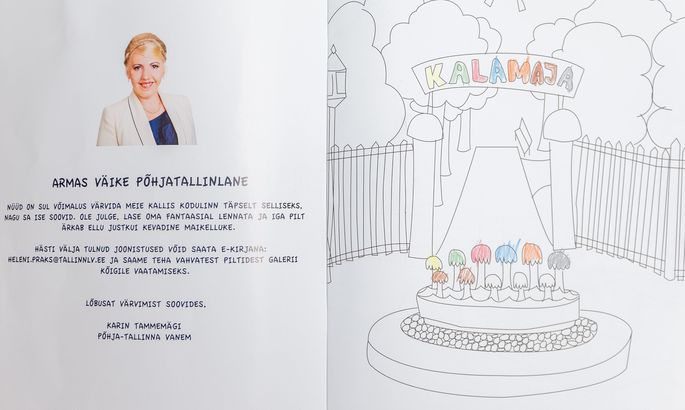 ARMAS VÄIKE PÕHJATALLINLANE
NÜÜD ON SUL VÕIMALUS VÄRVIDA MEIE KALLIS KODULINN TÄPSELT SELLISEKS,
NAGU SA ISE SOOVID. OLE JULGE, LASE OMA FANTAASIAL LENNATA JA IGA PILT
ÄRKAB ELLU JUSTKUI KEVADINE MAIKELLUKE.
HÄSTI VÄLJA TULNUD JOONISTUSED VÕID SAATA E-KIRJANA:
HELENI.PRAKS@TALLINNLV.EE JA SAAME TEHA VAHVATEST PILTIDEST GALERII
KÕIGILE VAATAMISEKS.
LÕBUSAT VÄRVIMIST SOOVIDES,
KARIN TAMMEMÄGI
PÕHJA-TALLINNA VANEM
KALAMAJA